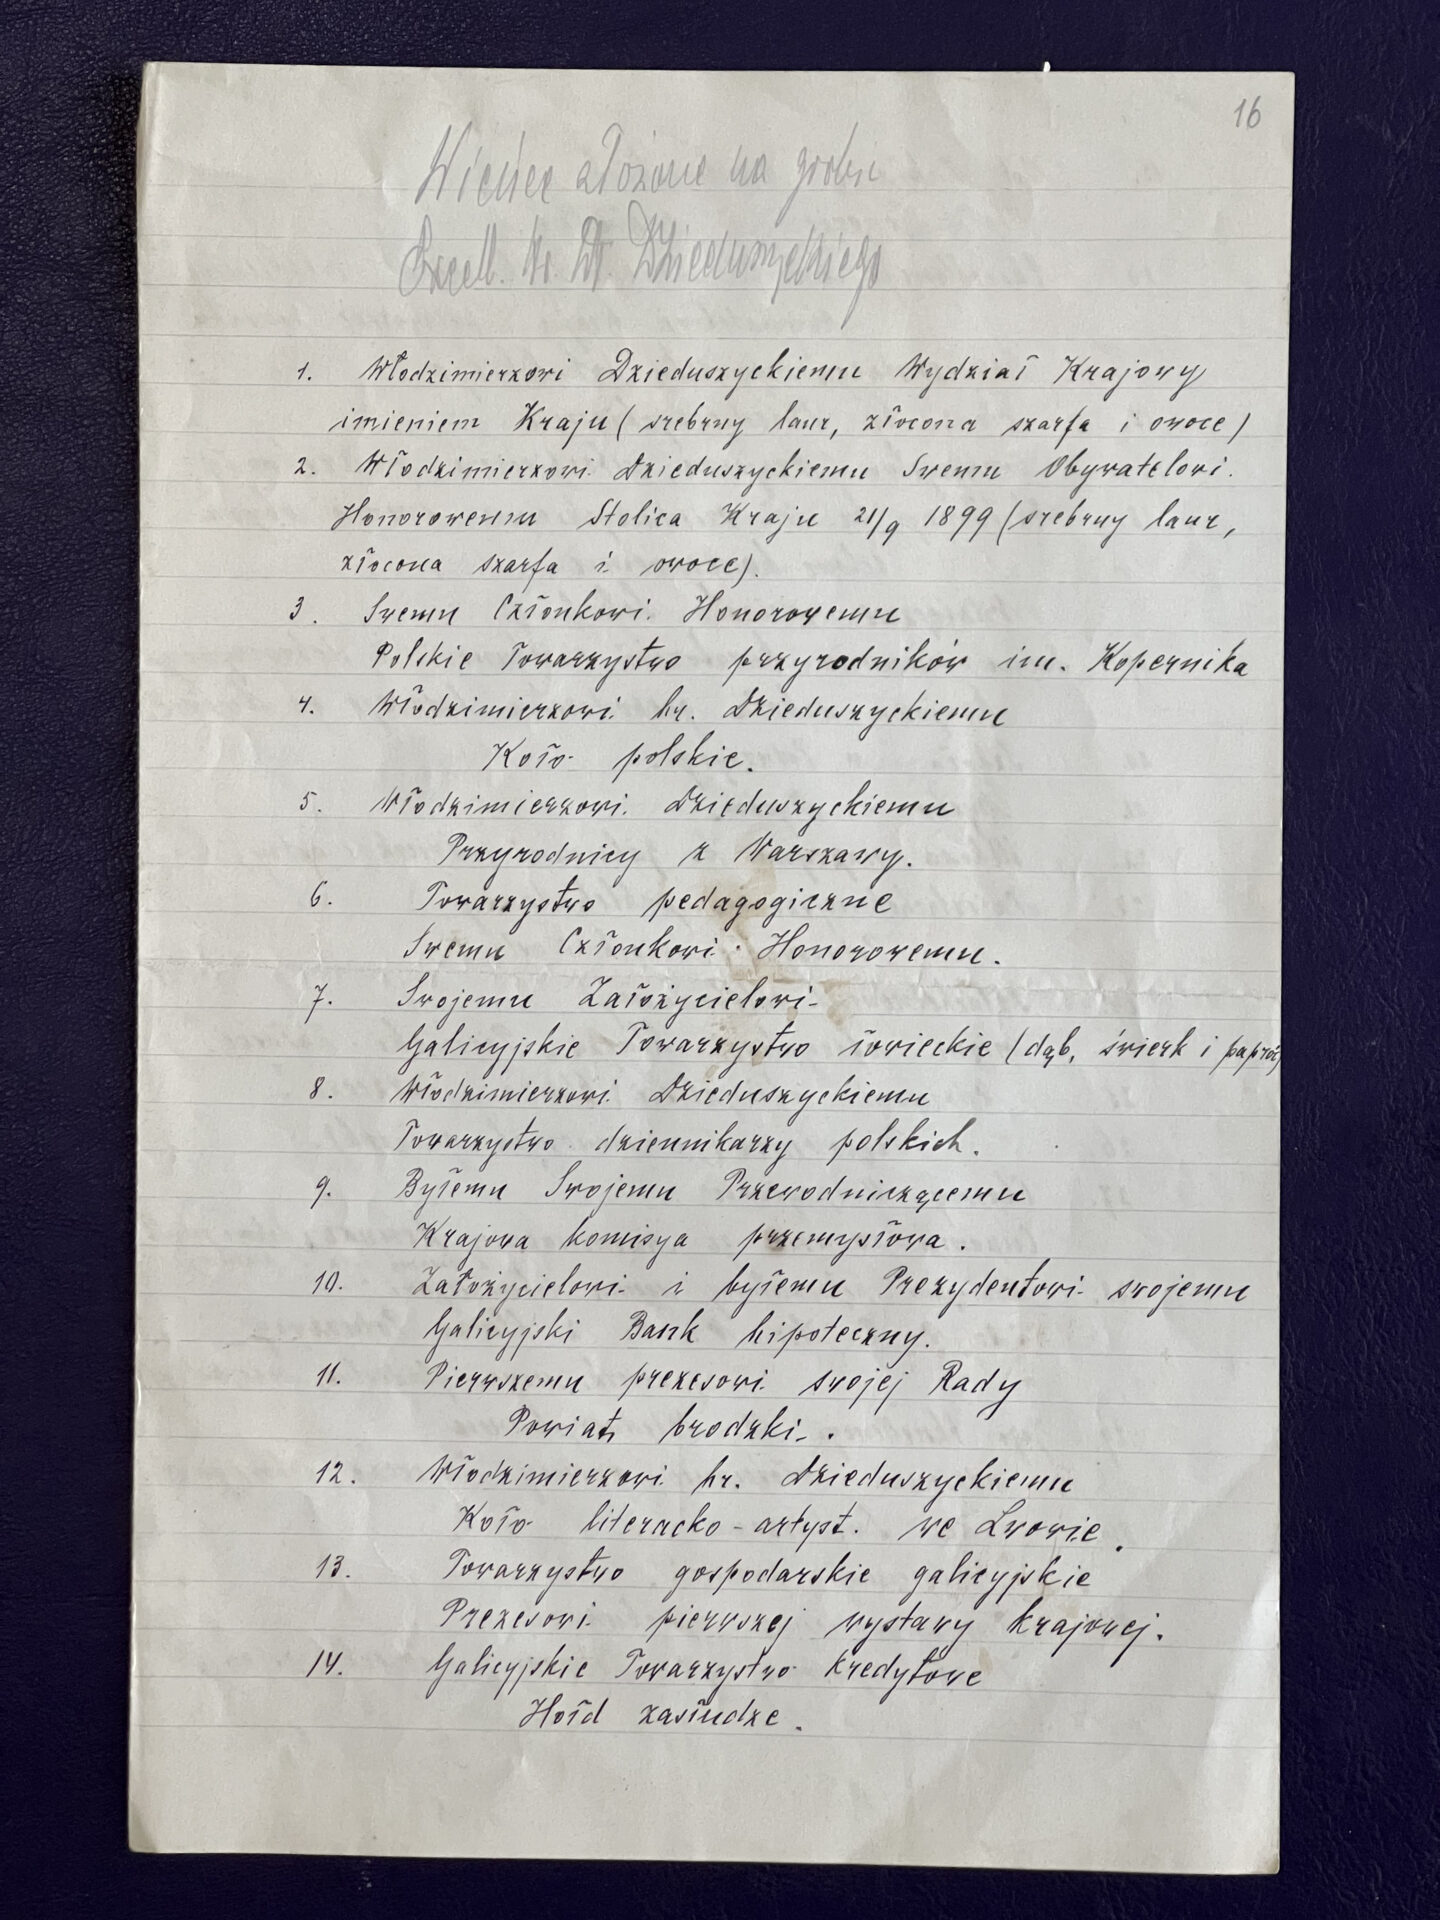 16
Wieńce złożone na grobie
Excell. hr. Wł. Dzieduszyckiego
1. Włodzimierzowi Dzieduszyckiemu Wydział Krajowy
imieniem Kraju (srebrny laur, złocona szarfa i owoce)
2. Włodzimierzowi Dzieduszyckiemu Swemu Obywatelowi
Honorowemu Stolica Kraju 21/9 1899 (srebrny laur,
złocona szarfa i owoce).
3. Swemu Członkowi Honorowemu
Polskie Towarzystwo przyrodników im. Kopernika
4. Włodzimierzowi hr. Dzieduszyckiemu
Koło polskie.
5. Włodzimierzowi Dzieduszyckiemu
Przyrodnicy z Warszawy.
6. Towarzystwo pedagogiczne
Swemu Członkowi Honorowemu.
7. Swojemu Założycielowi
Galicyjskie Towarzystwo łowieckie (dąb, świerk i paproć)
8. Włodzimierzowi Dzieduszyckiemu
Towarzystwo dziennikarzy polskich.
9. Byłemu Swojemu Przewodniczącemu
Krajowa komisya przemysłowa.
10. Założycielowi i byłemu Prezydentowi swojemu
Galicyjski Bank hipoteczny.
11. Pierwszemu prezesowi swojej Rady
Powiat brodzki.
12. Włodzimierzowi hr. Dzieduszyckiemu
Koło literacko-artyst. we Lwowie.
13. Towarzystwo gospodarskie galicyjskie
Prezesowi pierwszej wystawy krajowej.
14. Galicyjskie Towarzystwo kredytowe
Hołd zasłudze.